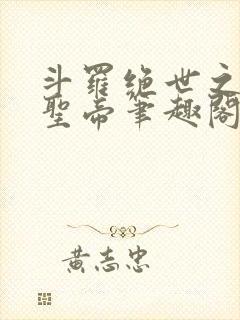 斗羅絕世之
聖帝筆趣閣
黃志忠